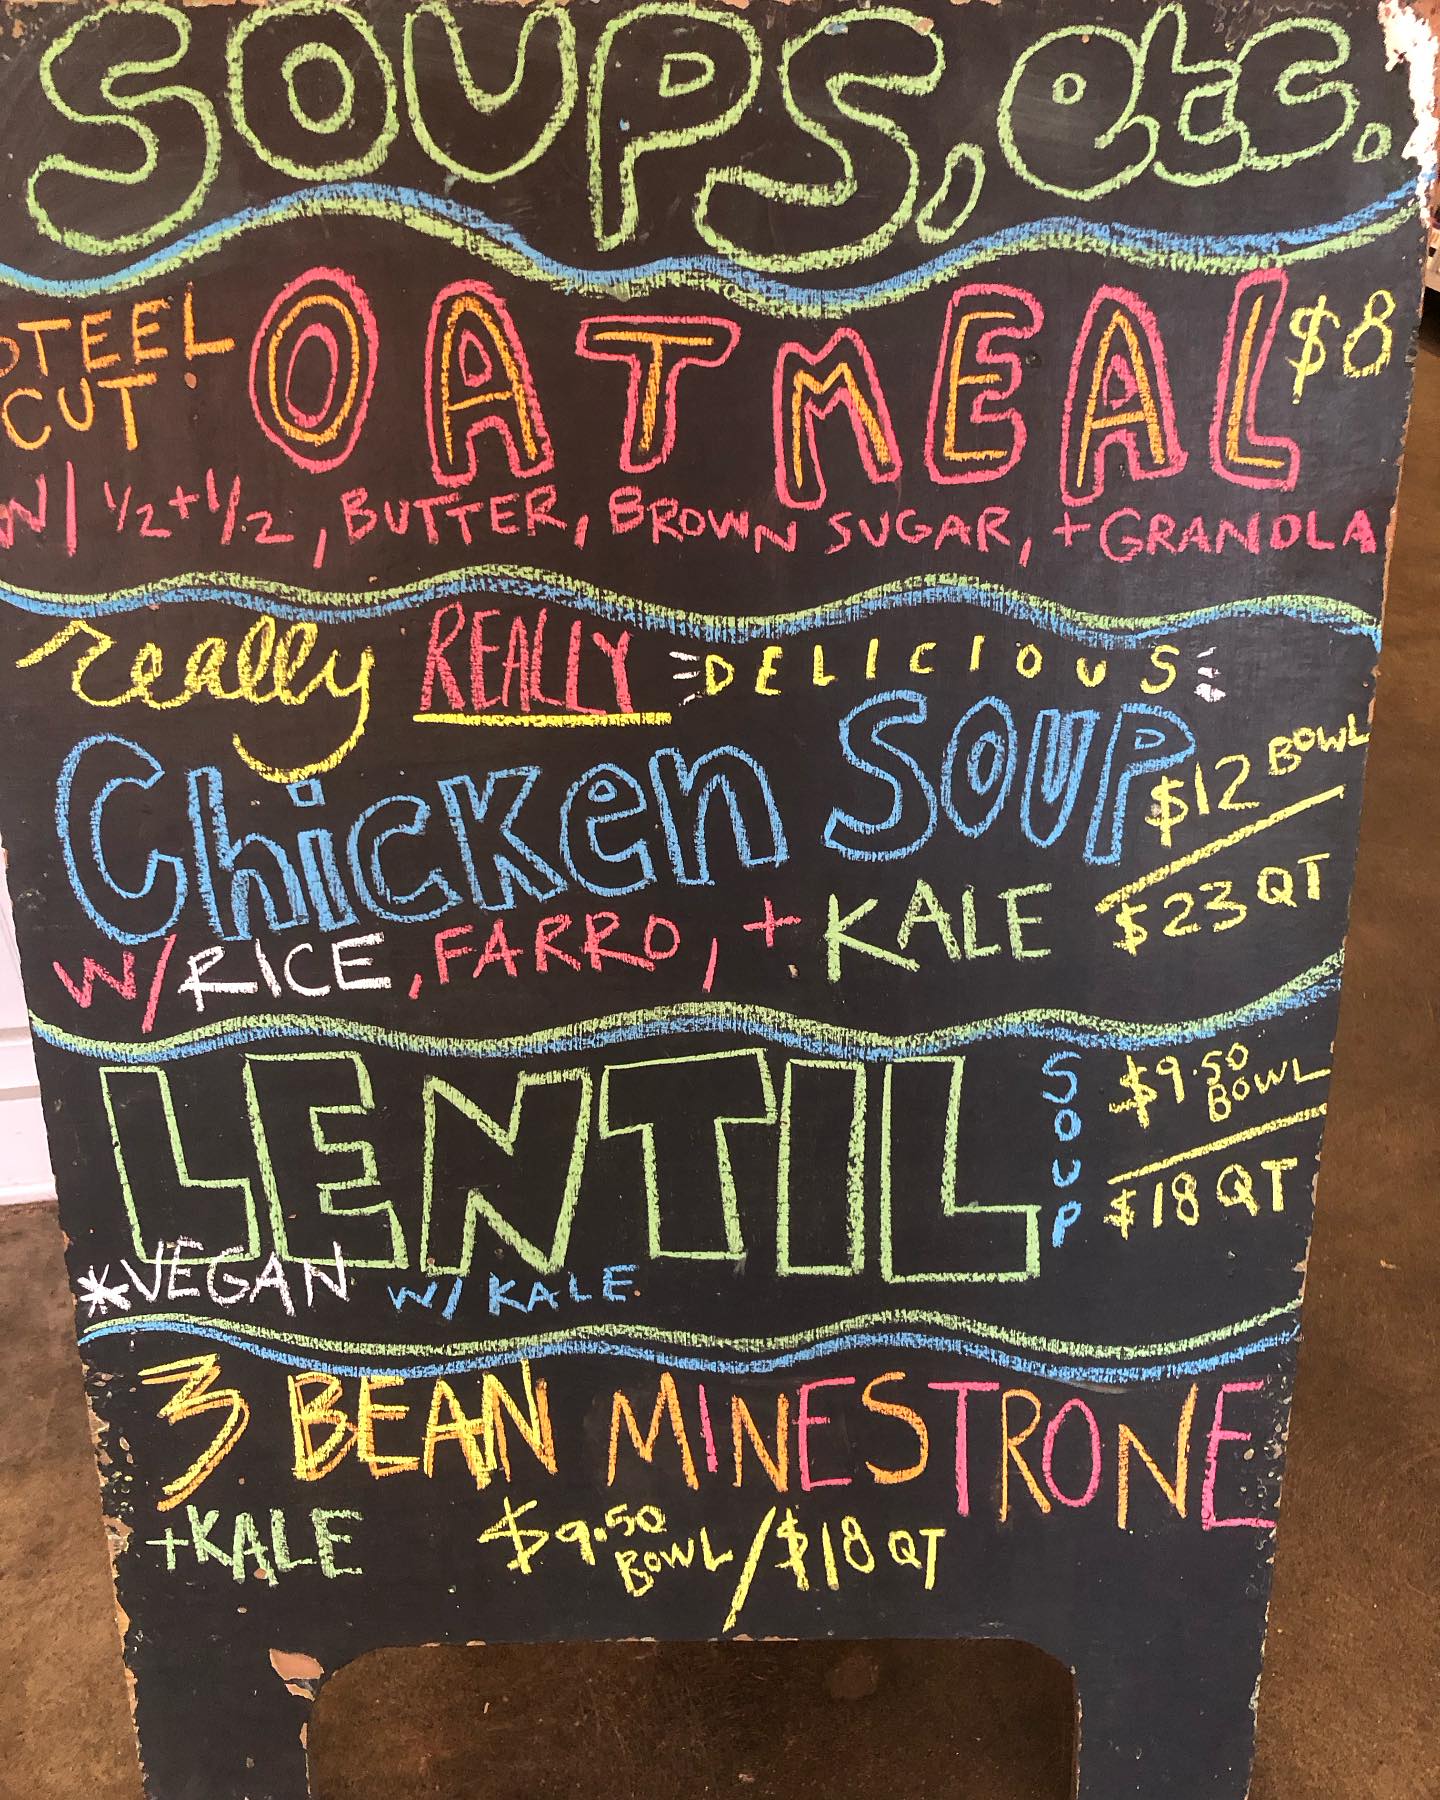 SOUPS, etc.
STEEL CUT OATMEAL $8
W/ 1/2+1/2, BUTTER, BROWN SUGAR, + GRANOLA
really REALLY DELICIOUS
Chicken SOUP $12 BOWL
$23 QT
W/ RICE, FARRO, + KALE
LENTIL SOUP $9.50 BOWL
$18 QT
*VEGAN W/ KALE
3 BEAN MINESTRONE
+KALE $9.50 BOWL/$18 QT